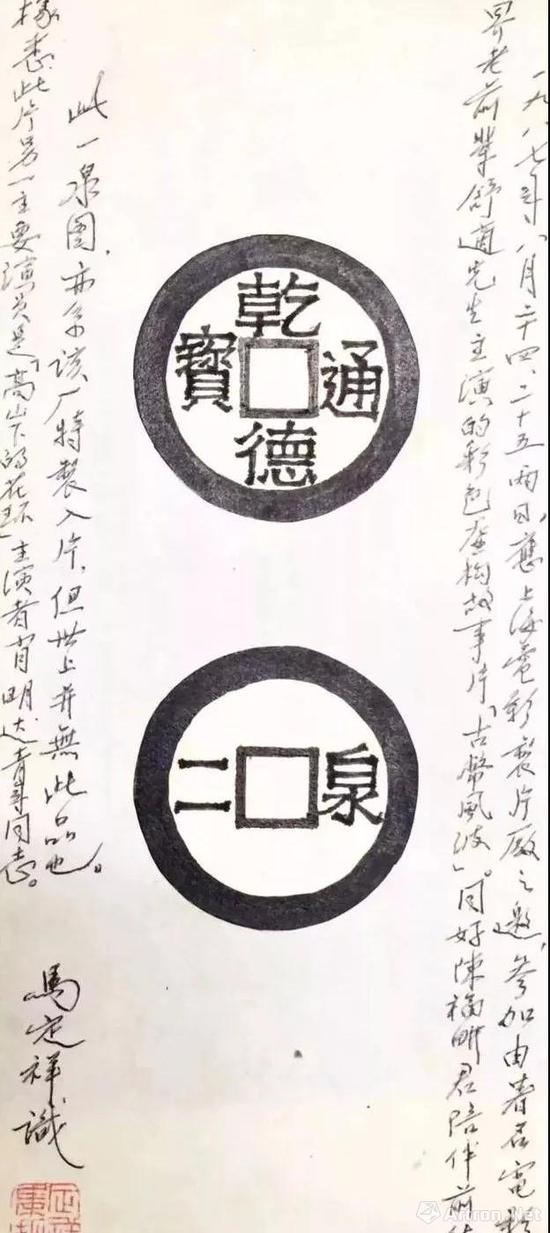 一九八七年八月二十四、二十五兩日，應上海電影製片廠之邀，参加由著名電影
界老前輩舒適先生主演的彩色虛構故事片「古幣風波」。同好陳福畊君陪伴前
乾德通寶
泉二
此一泉圖，亦系该厂特製入片，但世上并無此品也。
據悉此片另一主要演员是「高山下的花环」主演者肖明达青年同志。
馬定祥識
Artron.Net